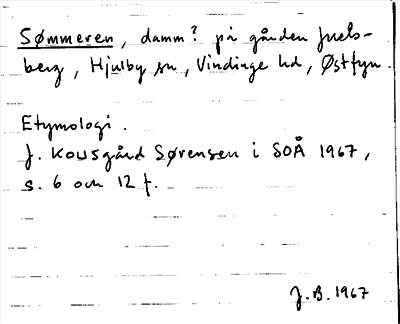 Sømmeren, damm? på gården Juels-
berg, Hjulby sn, Vindinge hd, Østfyn.
Etymologi.
J. Kousgård Sørensen i SOÅ 1967,
s. 6 och 12 f.
J.B. 1967